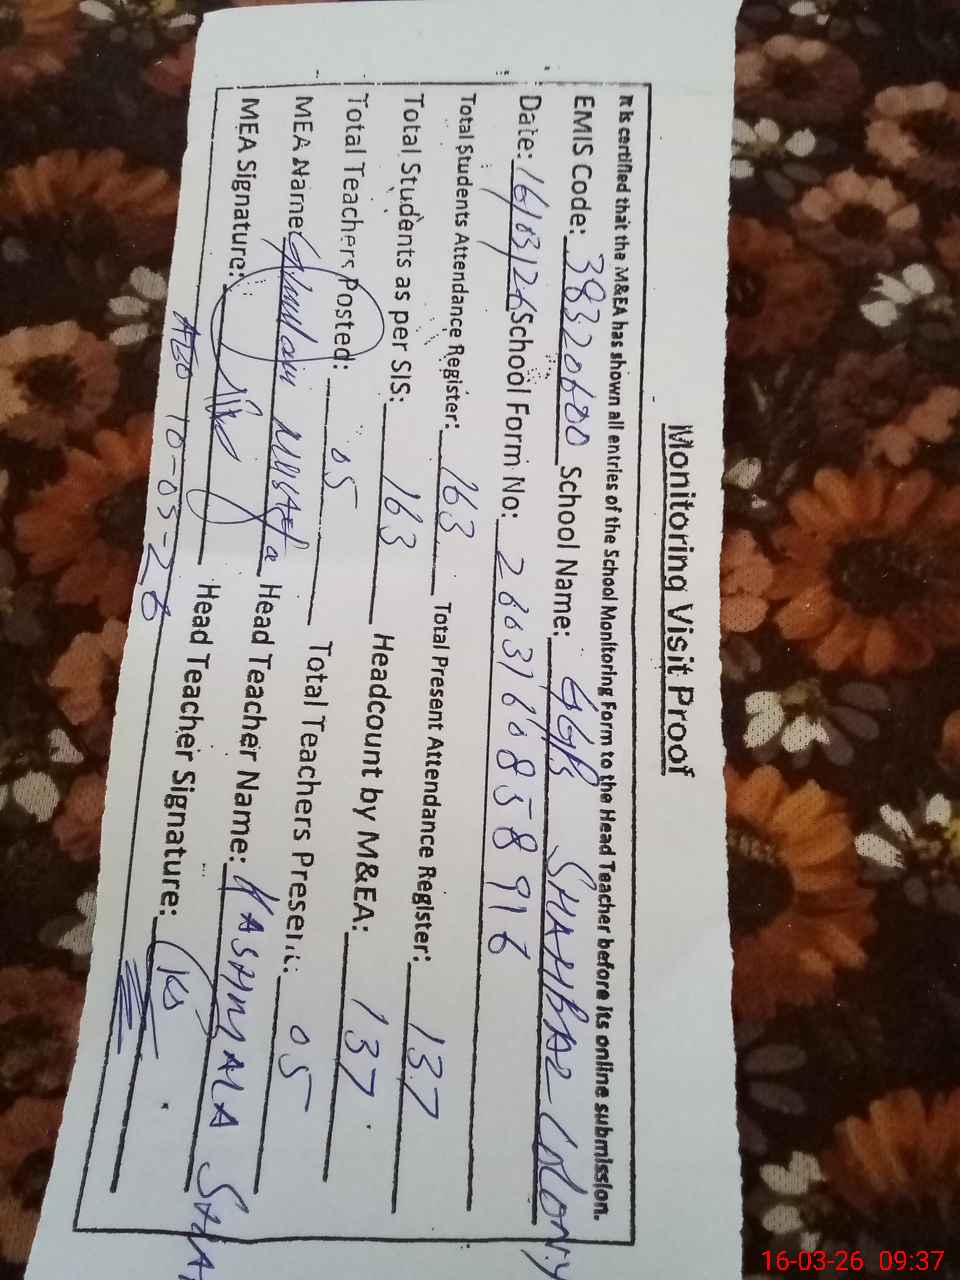 Monitoring Visit Proof
It is certified that the M&EA has shown all entries of the School Monitoring Form to the Head Teacher before its online submission.
EMIS Code: 38320600 School Name: GGPS SHAHBAZ COLONY
Date: 16/03/26 School Form No: 2603160858916
Total Students Attendance Register: 163 Total Present Attendance Register: 137
Total Students as per SIS: 163 Headcount by M&EA: 137
Total Teachers Posted: 05 Total Teachers Present: 05
MEA Name: Ghulam Mustafa Head Teacher Name: KASHMALA
MEA Signature: Head Teacher Signature:
AEO 10-03-26
16-03-26 09:37